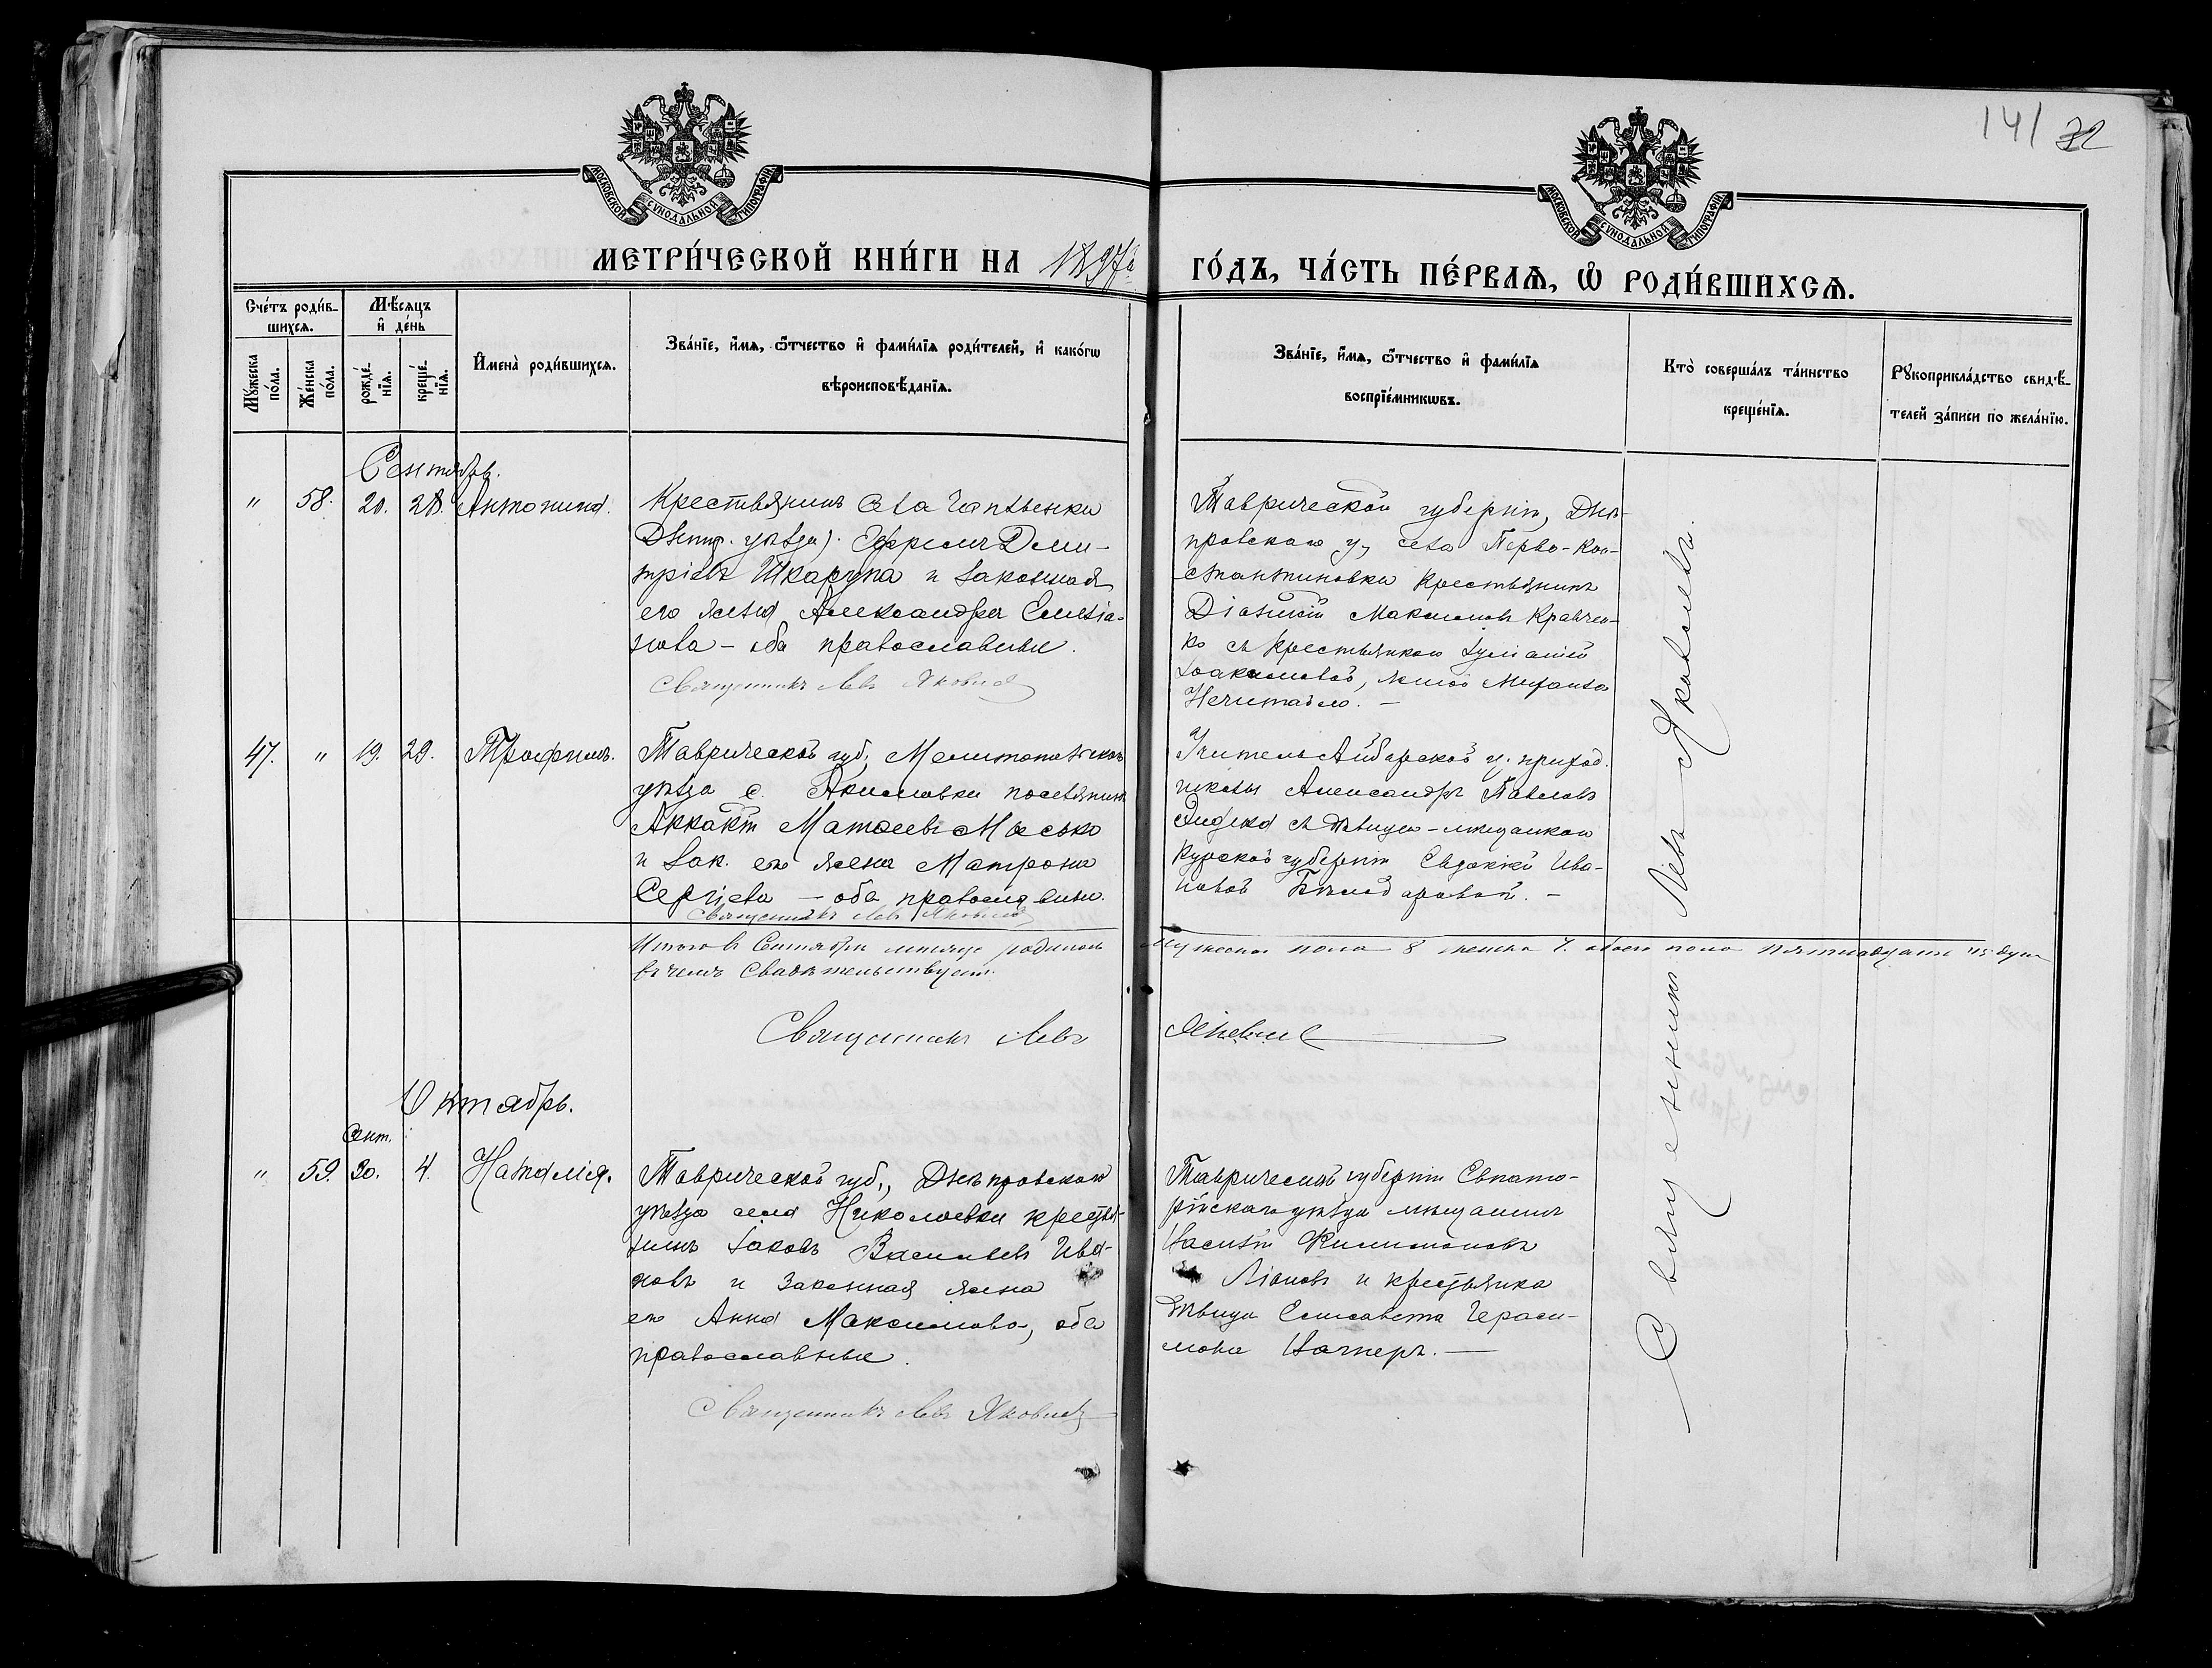 141 32
МОСКОВСКОЙ СѴНОДАЛЬНОЙ ТИПОГРАФІИ
МОСКОВСКОЙ СѴНОДАЛЬНОЙ ТИПОГРАФІИ
МЕТРИ́ЧЕСКОЙ КНИ́ГИ НА 1897й ГО́ДЪ, ЧА́СТЬ ПЕ́РВАѦ, Ѽ РОДИ́ВШИХСѦ.
Сче́тъ роди́в-
шихсѧ.
Мꙋ́жеска по́ла.
Же́нска по́ла.
Мѣ́сѧцъ
и҆ де́нь
рожде́-
нїѧ.
креще́-
нїѧ.
И҆мена̀ роди́вшихсѧ.
Зва́нїе, и҆́мѧ, ѻ҆́тчество и҆ фами́лїѧ роди́телей, и҆ како́гѡ
вѣроисповѣ́данїѧ.
Зва́нїе, и҆́мѧ, ѻ҆́тчество и҆ фами́лїѧ
воспрїе́мникѡвъ.
Кто̀ соверша́лъ та́инство
креще́нїѧ.
Рꙋкоприкла́дство свидѣ́-
телей за́писи по жела́нїю.
Сентябрь.
" 58. 20. 28. Антонина.
Крестьянинъ села Чаплынки
Днѣпр. уѣзда). Ефремъ Дими-
тріевъ Шкарупа и законная
его жена Александра Емелiа-
нова - оба православные.
Священникъ Левъ Яковлевъ
Таврической губерніи, Днѣ-
провскаго у, села Перво-Кон-
стантиновки крестьянинъ
Діонисій Максимовъ Кравчен-
ко съ крестьянкою
Іоакимовой, женой Михаила
Нечитайло. -
47. " 19. 29. Трофимъ.
Таврической губ, Мелитопольскаго
уѣзда с. Акимовки поселянинъ
Матѳеевъ Мосько
и зак. его жена Матрона
Сергіева - оба православны.
Священникъ Левъ Яковлевъ
Учитель Айбарской ц. приход.
школы Александръ Павловъ
съ дѣвицею-мѣщанкою
Курской губерніи Евдокіей Ива-
новой
Итого въ Сентябрѣ мѣсяцѣ родилось мужеска пола 8 женска 7. обоего пола пятнадцать 15 душъ
въ чемъ свидѣтельствуетъ.
Священникъ Левъ Яковлевъ
Октябрь.
Сент.
" 59. 30. 4. Наталія.
Таврической губ., Днѣпровскаго
уѣзда села Николаевки крестья-
нинъ Іаковъ Васильевъ Ива-
новъ и законная жена
его Анна Максимова, оба
православные.
Священникъ Левъ Яковлевъ
Таврической губерніи Евпато-
рійскаго уѣзда мѣщанинъ
Василій Филимоновъ
Ліоновъ и крестьянка
дѣвица Елисавета Гераси-
мова Вагнеръ. -
Священникъ Левъ Яковлевъ.